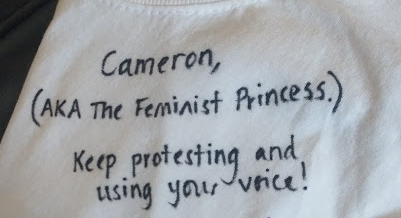 Cameron,
(AKA The Feminist Princess.)
Keep protesting and
using your voice!